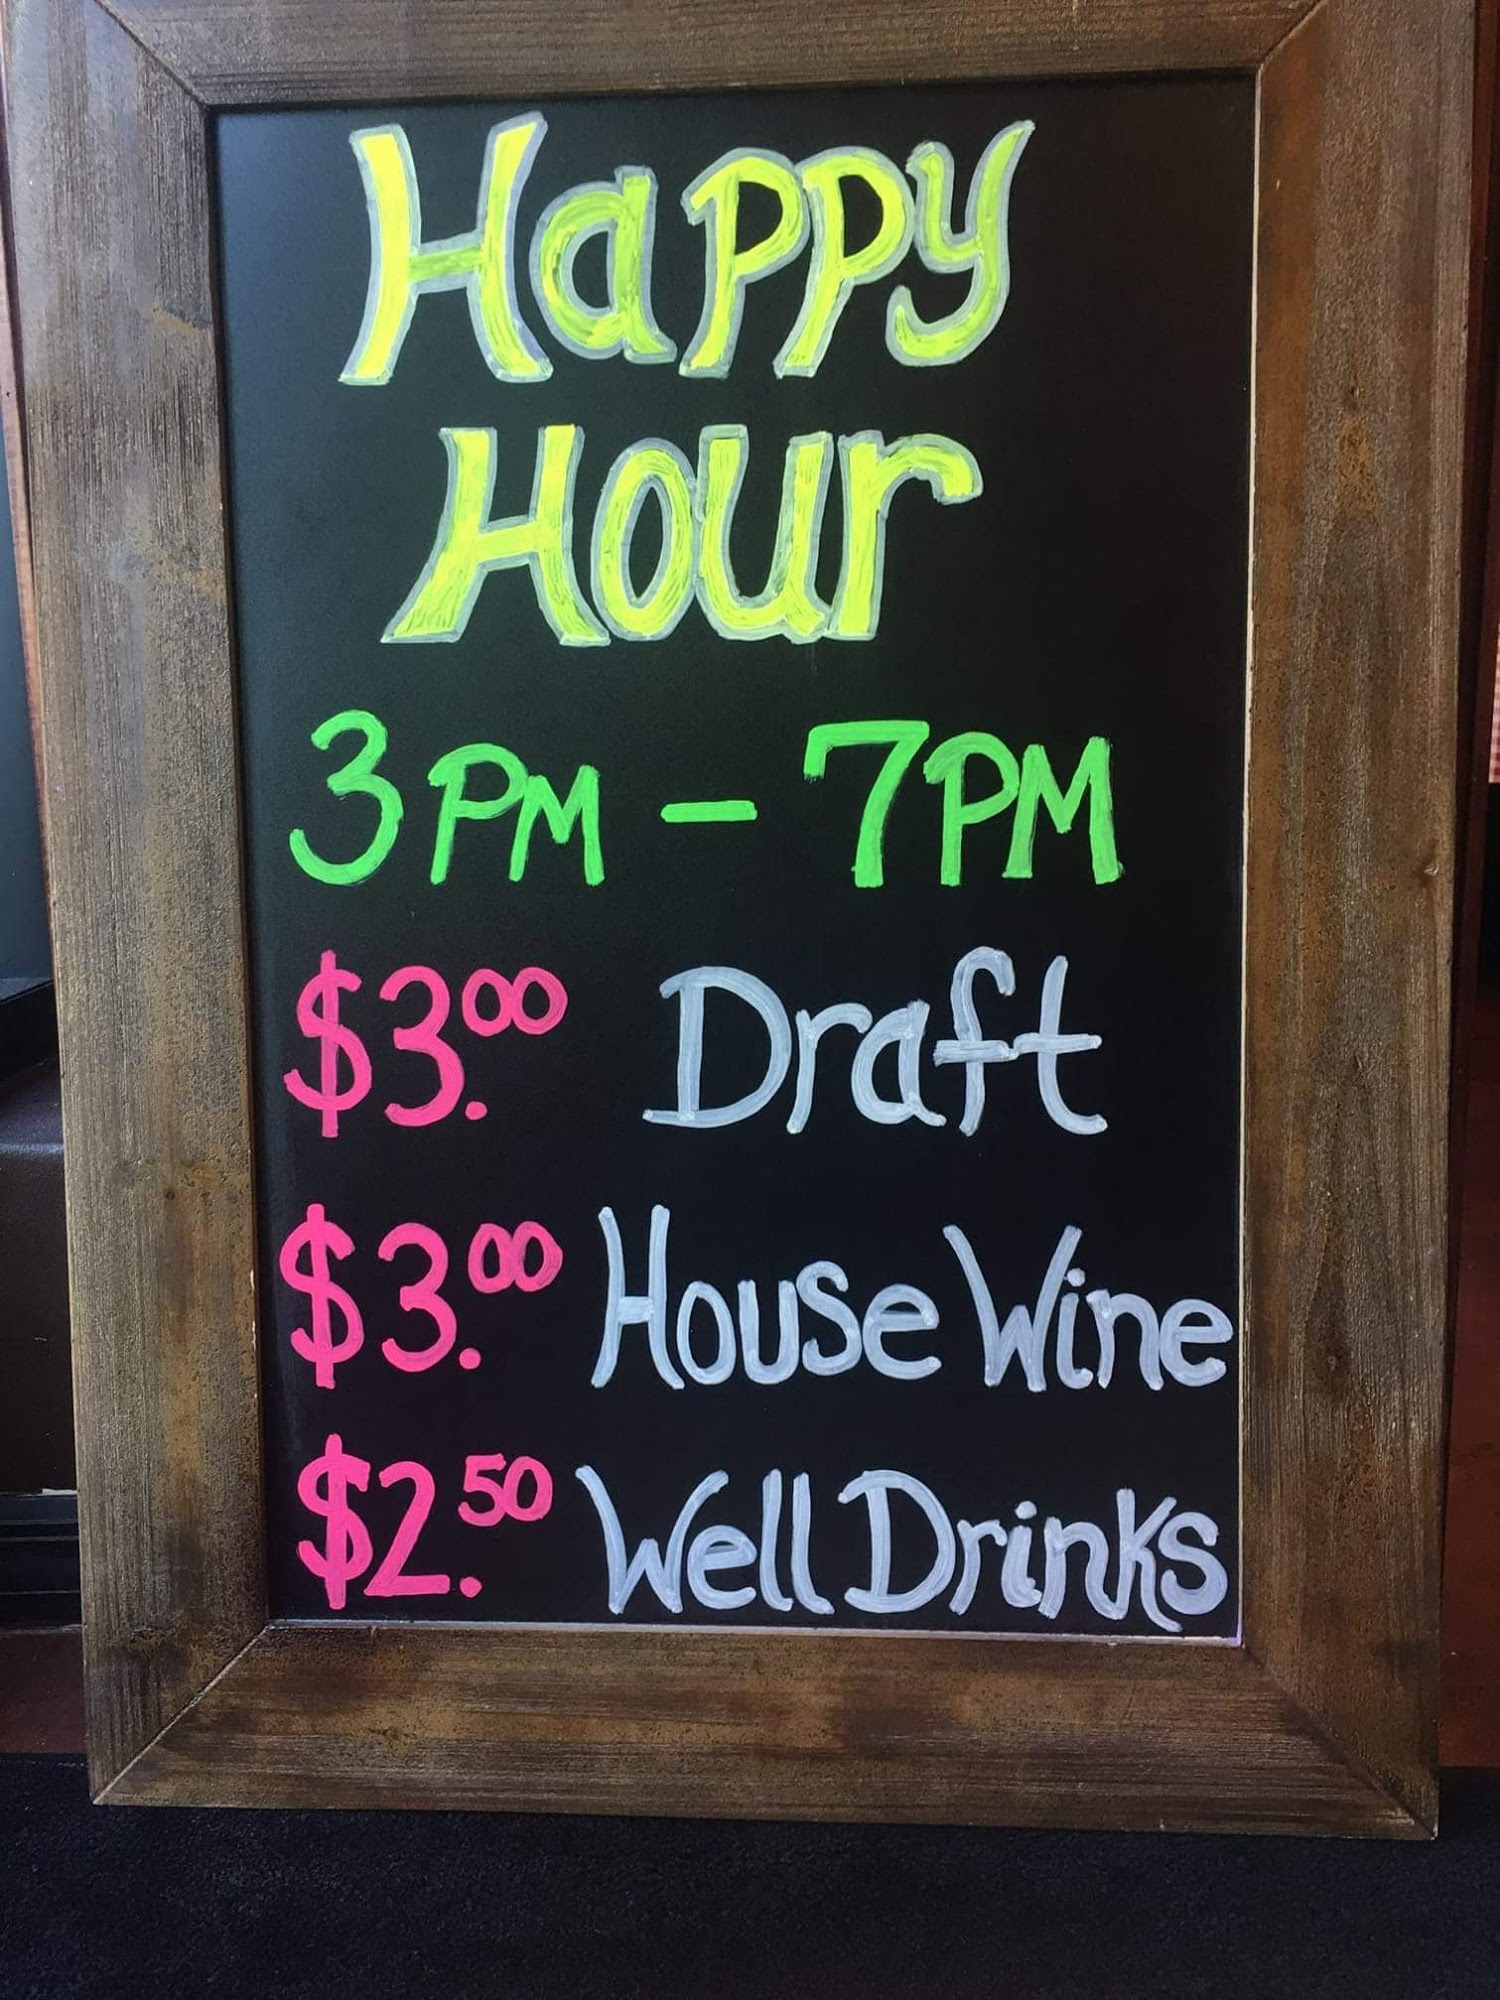 Happy
Hour
3PM - 7PM
$3.00 Draft
$3.00 House Wine
$2.50 Well Drinks